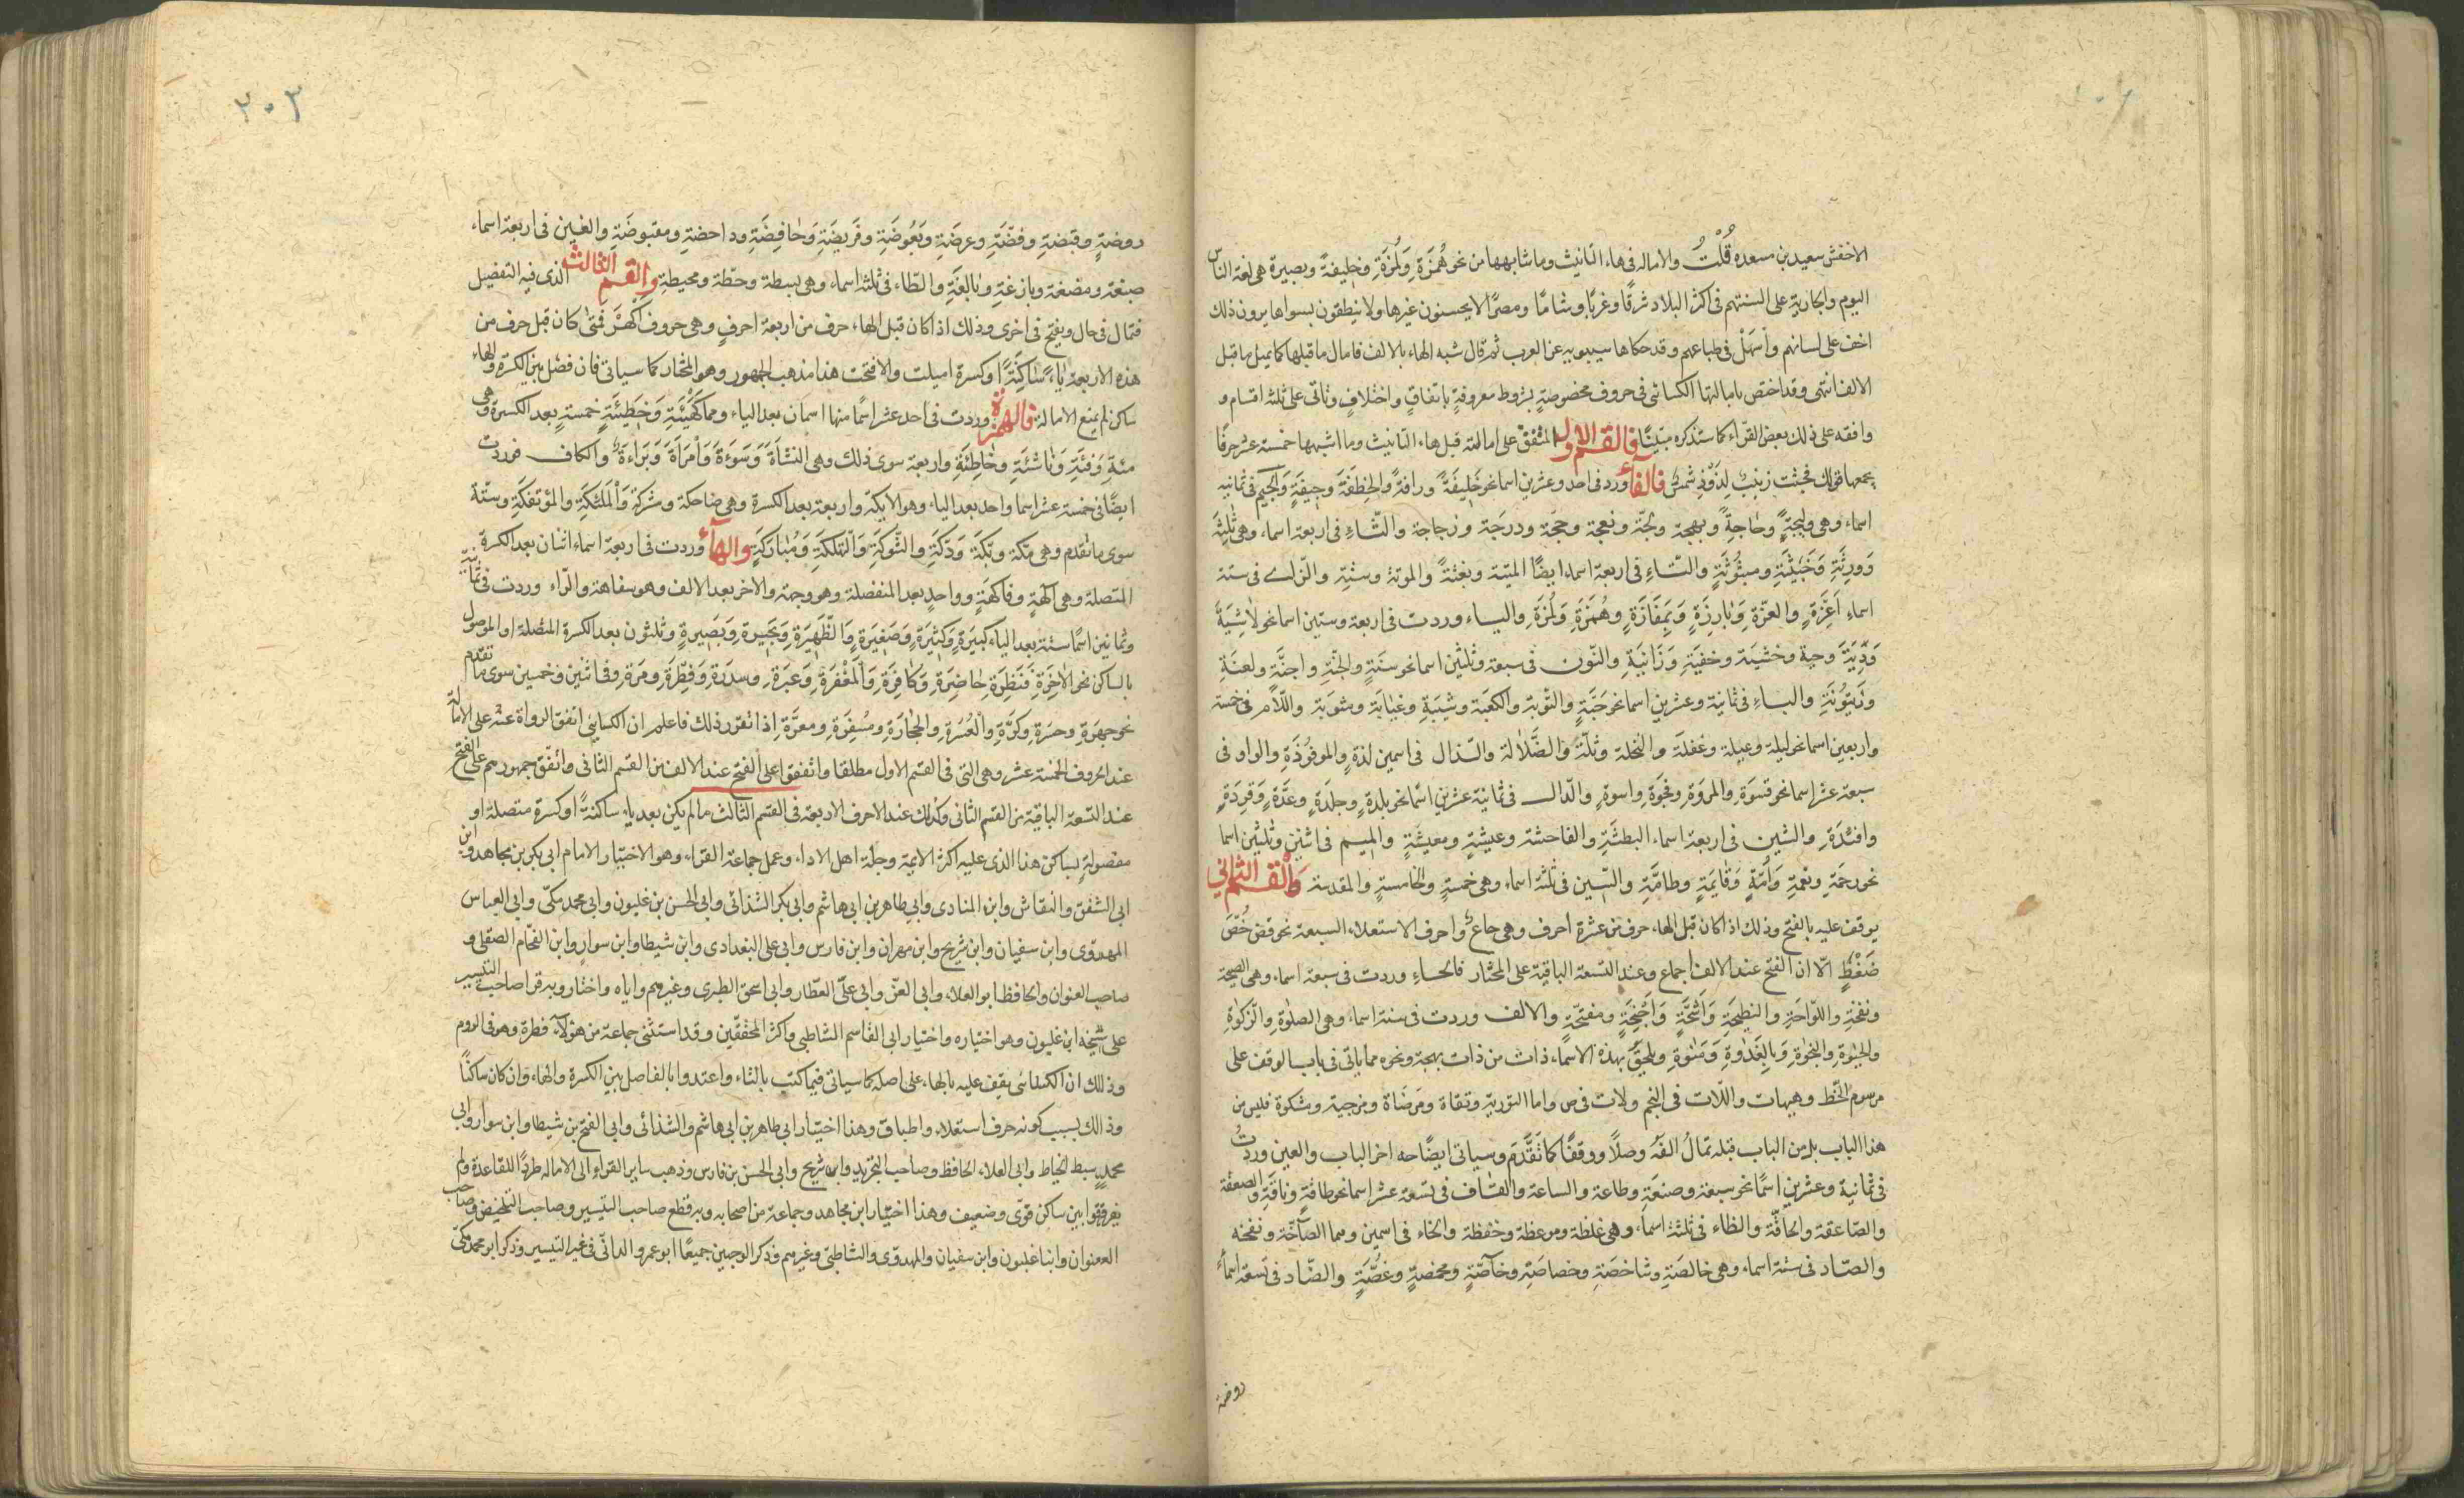 الاخفش سعيد بن مسعده قُلْتُ والاماله فى هاء التانيث وما شابهها من نحو هُمَزَةِ وَلُمَزَةِ وخليفةً وبصيرة هى لغة الناس
اليوم والجارية على السنتهم فى اكثر البلاد شرقًا وغربًا وشامًا ومصرًا لا يحسنون غيرها ولا ينطقون بسواها يرون ذلك
اخف على لسانهم واَسهَلْ فى طباعهم وقد حكاها سيبويه عن العرب ثم قال شبه الهاء بالالف فامال ما قبلها كما يميل ما قبل
الالف انتهى وقد اختص بامالتها الكسائى فى حروف مخصوصةٍ بشروط معروفةٍ باتفاقٍ واختلافٍ وتاتى على ثلثه اقسام و
وافقه على ذلك بعض القرّاء كما ستذكره مبيّنًا فالقسم الاول المتّفقُ على امالته قبل هاء التانيث وما اشبهها خمسة عشر حرفًا
يجمعها قولك فجثت زينبُ لِذَوْدِ شمسٌ فالفاء ورد فى احد وعشرين اسما نحو خليفَةً ورافةً والخِطَفَةَ وجيفَةٍ والجيم فى ثمانيه
اسماء وهى وليجةٍ وحاجةً وبهجة ولجّة ونعجة وحجّة ودرجَة وزجاجة والثّاءِ فى اربعة اسماء وهى ثلثِة
وَورثَةِ وَخَبيْثَةِ ومبثُوثَةٍ والتّاءِ فى اربعة اسماء ايضًا الميتة وبغتةً والموتة وستّة والزّاء فى ستة
اسماءِ اَعِزَةٍ والعزّة وَبارزةِ وَبمفَازَةٍ وهُمَزَةِ وَلُمَزَةِ والياء وردت فى اربعة وستين اسما نحو لاشِيَةَ
وَدِّيَةٌ وحية وخشية وخفيَةِ وَزَانيَةِ والنّون فى سبعة وثلثين اسما نحو سَنَةٍ والجنّةِ واجنَّةٍ ولعنَةِ
وزَيتُونَةِ والباءِ فى ثمانية وعشرين اسما نحو حَبَّةٍ والتّوبة والكعبَة وشيبَةِ وغيابَة ومثوبَة واللّام فى خمسة
واربعين اسما نحو ليلة وعيلة وغفلَة والنحلة وثلّة والضّلالة والذّال فى اسمين لذةٍ والموقُوذَةِ والواو فى
سبعة عشر اسما نحو قسوَةِ والمروَةِ وفجوَةِ واسوةٍ والدّال فى ثمانية عشرين اسمًا نحو بلدةٍ وجلدَةٍ وعدَّةٍ وَقِردَةٍ
وافئدَةِ والشين فى اربعة اسماء البطشَةِ والفاحشة وعيشةٍ ومعيشَةٍ والميم فى اثنين وثلثين اسما
نحو رحمَةِ ونعمةِ وَاُمّةٍ وَقايمَةٍ وطامَّةِ والسّين فى ثلثة اسماء وهى خمسةٍ والخامسةِ والمقدسة وَالْقسم الثانى
يوقف عليه بالفتح وذلك اذا كان قبل الهاء حرف من عشرة احرف وهى حاع واحرف الاستعلاء السبعة نحو قض خُصَّ
ضَغْطٍ الّا ان الفتح عند الالف اجماع وعند التسعة الباقيّة على المختار فالحاءِ وردت فى سبعة اسماء وهى الصيحة
ونفخةِ واللّواحَةِ والنطيحَةِ وَاَشِحَّةٍ وَاَجْنِحَةٍ ومفتحَةٍ والالف وردت فى ستة اسماء وهى الصلٰوة والزّكوٰةِ
والحيٰوةِ والنجٰوةِ وَبالغَدٰاوةِ وَمَنٰوةِ ويلحقَّ بهذه الاسمَاءِ ذات من ذات بهجة ونحوه مما ياتى فى باب الوقف على
مرسوم الخَّط وهيهات واللّات فى النجم ولات فى ص واما التوريٰة وتقاة ومَرضَاة ومزجية ومشكٰوة فليس من
هذا الباب بل من الباب قبله تمالُ الفَهُ وصلًا ووقفًا كما تَقَّدَم وسياتى ايضًاحه اخر الباب والعين وردتُ
فى ثمانية وعشرين اسمًا نحو سبعة وصنعَةِ وطاعة والساعة والقاف فى تسعة عشر اسما نحو طاقةٍ وناقَةِ والصعقة
والصّاعقة والحاقّة والظاء فى ثلثة اسماءِ وهى غلظة وموعظة وحفظة والخاء فى اسمين وهما الصّآخّة ونفخه
والصّاد فى ستة اسماء وهى خالصَةٍ وشاخصَةٍ وخصاصَةٍ وخآصّةٍ ومخمصةٍ وغُصَّةٍ والضّاد فى تسعة اسماءٍ
روضة
٢٠٢
روضةٍ وقبضةٍ وفضّةٍ وعرضَةٍ وبَعُوضَةٍ وفَريضَةٍ وَخافِضَةٍ وداحضةٍ ومقبوضَةٍ والغين فى اربعة اسماء
صبغة ومضغة وبازغةٍ وبالغَةٍ والطّاء فى ثلثة اسماء وهى بسطة وحطّة ومحيطةِ والقسم الثالث الذى فيه التفصيل
فتمال فى حال ويفتح فى اخرى وذلك اذا كان قبل الهاء حرف من اربعة احرفٍ وهى حروف اَكْهَرُ فمتىٰ كان قبل حرف من
هذه الاربعة ياءً سَاكِنَةً او كسرة اميلت والا فتحت هذا مذهب الجمهور وهو المختار كما سياتى فان فصل بين الكسرة والهاء
ساكن لم يمنع الامالة فالهمزة وردت فى احد عشر اسمًا منها اسمان بعد الياء وهما كَهَيْئَةِ وَخَطيئَةٍ خمسةٍ بعد الكسرة وهى
مئةِ وَفئَةٍ وَناشئَةِ وَخاطِئَةِ واربعة سوى ذلك وهى النشأَةَ وَسَوْءَةَ وَاَمْرَأَةَ وَبَراءَةَ والكاف فوردت
ايضًا فى خمسة عشر اسما واحد بعد الياء وهو الايكة واربعة بعد الكسرة وهى ضاحكة ومشركة وَالْمَلئكَةِ والمؤتفكَةِ وستّة
سوى ما تقدم وهى مكّة وبَكَّة وَدَكَّةِ والشّوكَةِ وَالتهلكَةِ وَمُبارَكَةٍ والهاء وردت فى اربعة اسماء اثنان بعد الكسرة
المتصلة وهى آلهةٍ وفاكهَةٍ وواحدٍ بعد المنفصلة وهو وجهة والاخر بعد الالف وهو سفاهة والرّاء وردت فى ثمانية
وثمانين اسمًا ستة بعد الياء كبيرَةٍ وَكثيرَةٍ وَصَغيرَةٍ وَالظّهيرَةِ وَبَحيرةٍ وَبَصيرةٍ وثلثون بعد الكسرة المتصلة او الموصول
بالساكن نحو الاٰخِرَةِ فَنَظِرَةِ حاضِرَةِ وَكافِرَةٍ وَالْمَغْفِرَةِ وَعبَرَةِ وسدرَةِ وَفِطرَةِ ومرَة وفى اثنين وخمسين سوى ما تقدّم
نحو جهرَةِ وحسرَةِ وكرَّةٍ والعُسرَةِ والحِجٰارَةِ ومُسفِرَةِ ومعرَّةِ اذا تقرر ذلك فاعلم ان الكسائى اتفق الرواة عنه على الامالة
عند الحروف الخمسة عشر وهى التى فى القسم الاول مطلقا واتفقوا على الفتح عند الالف من القسم الثانى واتفق جمهورهم على الفتح
عند التسعة الباقية من القسم الثانى وكذلك عند الاحرف الاربعة فى القسم الثالث ما لم يكن بعد ياءٍ ساكنةً او كسرةٍ متصلة او
مفصولةٍ بساكن هذا الذى عليه اكثر الائمة وجلّة اهل الاداء وعمل جماعة القراء وهو الاختيار الامام ابى بكر بن مجاهد وابن
ابى الشفق والنقاش وابن المنادى وابى طاهر بن ابى هاشم وابى بكر الشذائى وابى الحسن بن غلبون وابى محمد مكّى وابى العباس
المهدوى وابن سفيان وابن شريح وابن مهران وابن فارس وابى على البغدادى وابن شيطا وابن سوارٍ وابن الفحّام الصقلى و
صاحب العنوان والحافظ ابو العلاء وابى العزّ وابى علىّ العطّار وابى اسحق الطبرى وغيرهم واياه واختار وبه قرا صاحب التيسير
على شيخه ابن غلبون وهو اختياره واختيار ابى القاسم الشاطبى واكثر المحققّين وقد استثنى جماعة من هؤلاءِ فطرة وهو فى الروم
وذلك ان الكسائى يقف عليه بالهاء على اصله كما سياتى فيما كتب بالتاء واعتدوا بالفاصل بين الكسرة والهاء وَان كان ساكنًا
وذالك بسبب كونه حرف استعلاء واطباق وهذا اختيار ابى طاهر بن ابى هاشم والشذائى وابى الفتح بن شيطا وابن سوار وابى
محمدٍ سبط الخياط وابى العلاء الحافظ وصاحب التجريد وابن شريح وابى الحسن بن فارس وذهب ساير القراء الى الاماله طردًا للقاعدة ولم
يفرقوا بين ساكن قوّى وضعيف وهذا اختيار ابن مجاهد وجماعة من اصحابه وبه قطع صاحب التيسير وصاحب التلخيص وصاحب
العنوان وابنا غلبون وابن سفيان والمهدوى والشاطبى وغيرهم وذكر الوجهين جميعًا ابو عمرو الدانّى فى غير التيسير وذكر ابو محمد مكّى